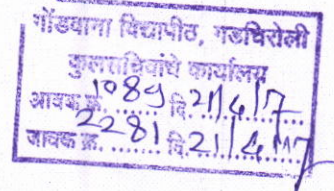 गोंडवाना विद्यापीठ, गडचिरोली
कुलसचिवांचे कार्यालय
आवक क्र. 1089 दि. 21/4/17
जावक क्र. 2281 दि. 21/4/17